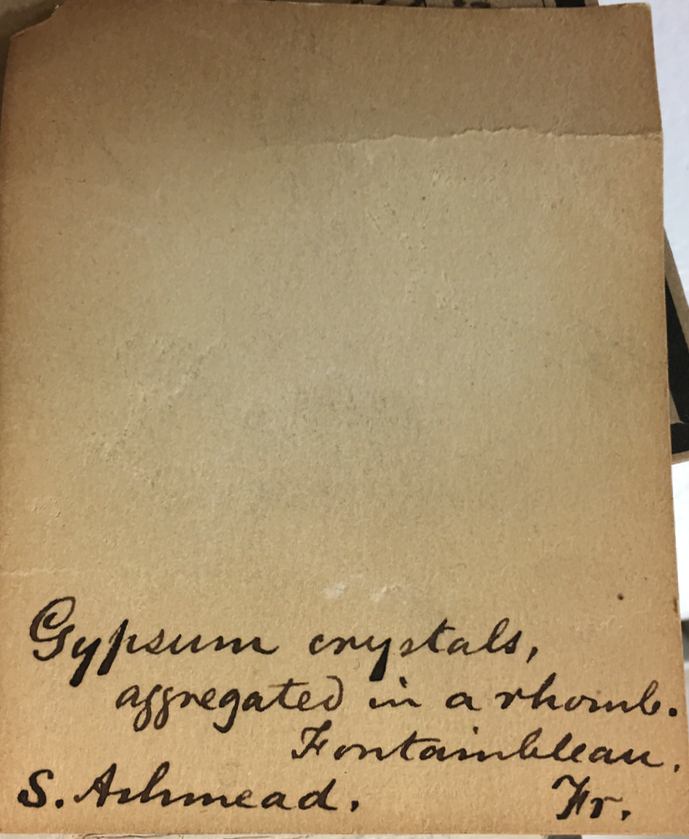 Gypsum crystals,
aggregated in a rhomb.
Fontainbleau.
S. Ashmead. Fr.